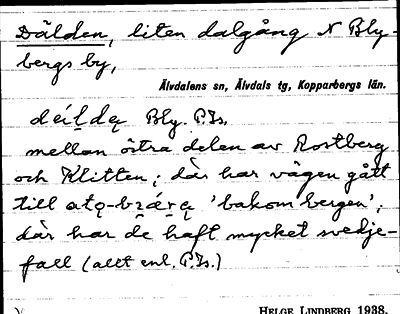 Dälden, liten dalgång N Bly-
bergs by,
Älvdalens sn, Älvdals tg, Kopparbergs län.
Bly. P.Is.
mellan östra delen av Rostberg
och Klitten; där har vägen gått
till 'bakom bergen';
där har de haft mycket svedje-
fall (allt enl. P.Is.)
HELGE LINDBERG 1938.